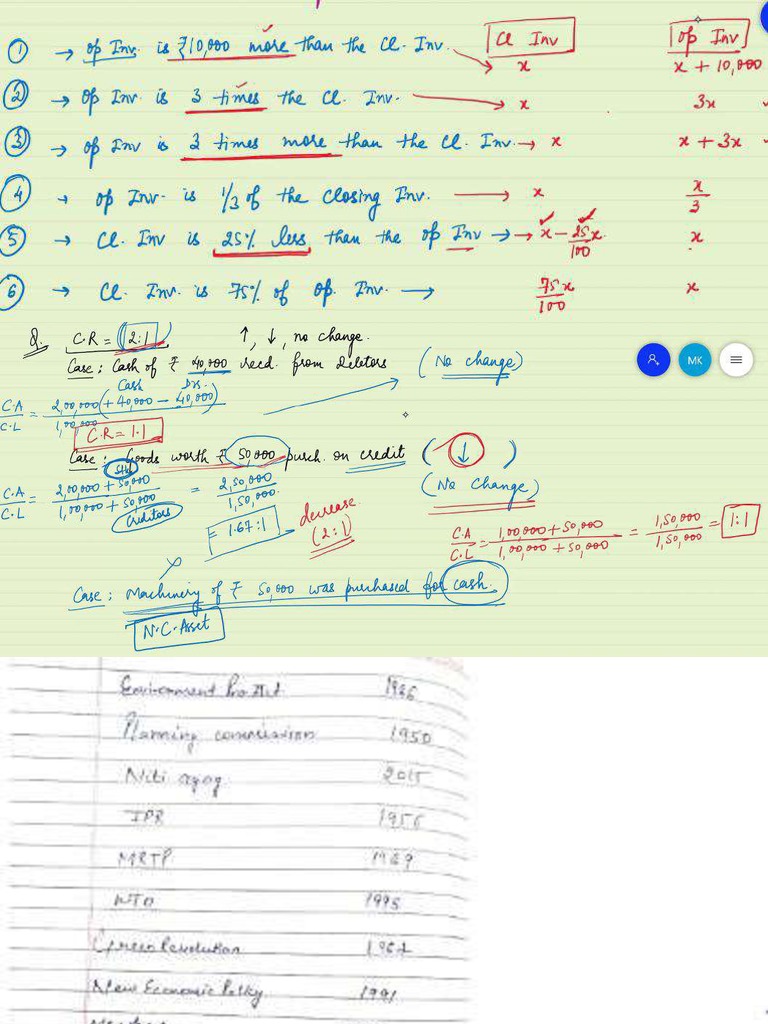 Cl Inv   Op Inv
① → Op Inv. is ₹10,000 more than the Cl. Inv. → x   x + 10,000
② → Op Inv. is 3 times the Cl. Inv. → x   3x
③ → Op Inv is 3 times more than the Cl. Inv. → x   x + 3x
④ → Op Inv. is 1/3 of the Closing Inv. → x   x/3
⑤ → Cl. Inv is 25% less than the Op Inv → → x − 25/100 x   x
⑥ → Cl. Inv. is 75% of Op. Inv. → 75x/100   x
Q. C.R = 2:1   ↑, ↓, no change.
Case: Cash of ₹ 40,000 recd. from Debtors (No change)
Cash Drs.
C.A/C.L = 2,00,000 + 40,000 − 40,000 / 1,00,000
C.R = 1:1
Case: Goods worth ₹ 50,000 purch. on credit (↓)
(No Change)
C.A/C.L = 2,00,000 + 50,000 / 1,00,000 + 50,000 = 2,50,000 / 1,50,000
Creditors
= 1.67:1 → decrease (2:1)
C.A/C.L = 1,00,000 + 50,000 / 1,00,000 + 50,000 = 1,50,000 / 1,50,000 = 1:1
Case: Machinery of ₹ 50,000 was purchased for cash.
N.C. Asset
MK
Environment Pro Act 1986
Planning commission 1950
Niti ayog 2015
IPR 1956
MRTP 1969
WTO 1995
Green Revolution
New Economic Policy 1991